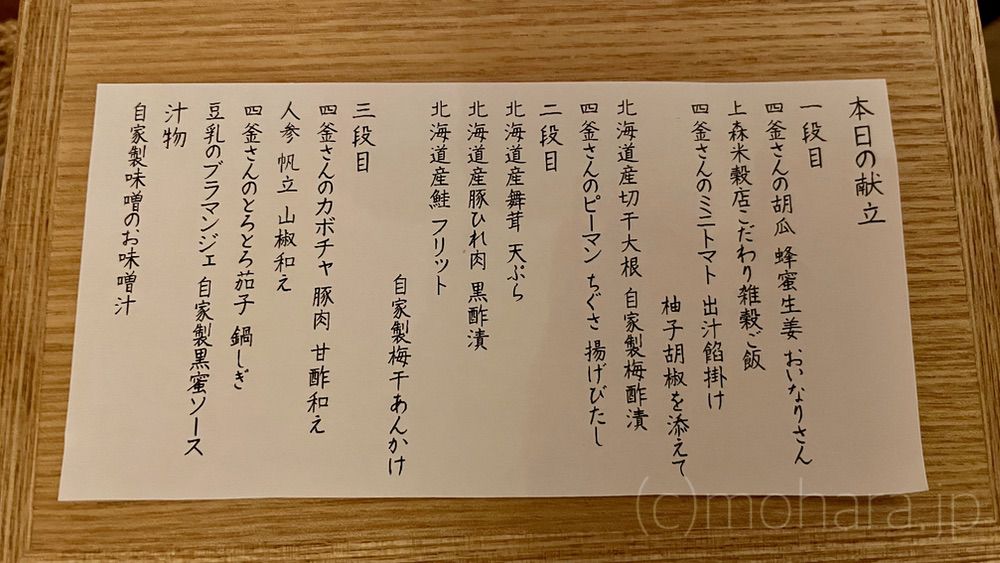 本日の献立
一段目
四釜さんの胡瓜 蜂蜜生姜 おいなりさん
上森米穀店こだわり雑穀ご飯
四釜さんのミニトマト 出汁餡掛け
柚子胡椒を添えて
北海道産切干大根 自家製梅酢漬
四釜さんのピーマン ちぐさ 揚げびたし
二段目
北海道産舞茸 天ぷら
北海道産豚ひれ肉 黒酢漬
北海道産鮭 フリット
自家製梅干あんかけ
三段目
四釜さんのカボチャ 豚肉 甘酢和え
人参 帆立 山椒和え
四釜さんのとろとろ茄子 鍋しぎ
豆乳のブラマンジェ 自家製黒蜜ソース
汁物
自家製味噌のお味噌汁
(c)mohara.jp